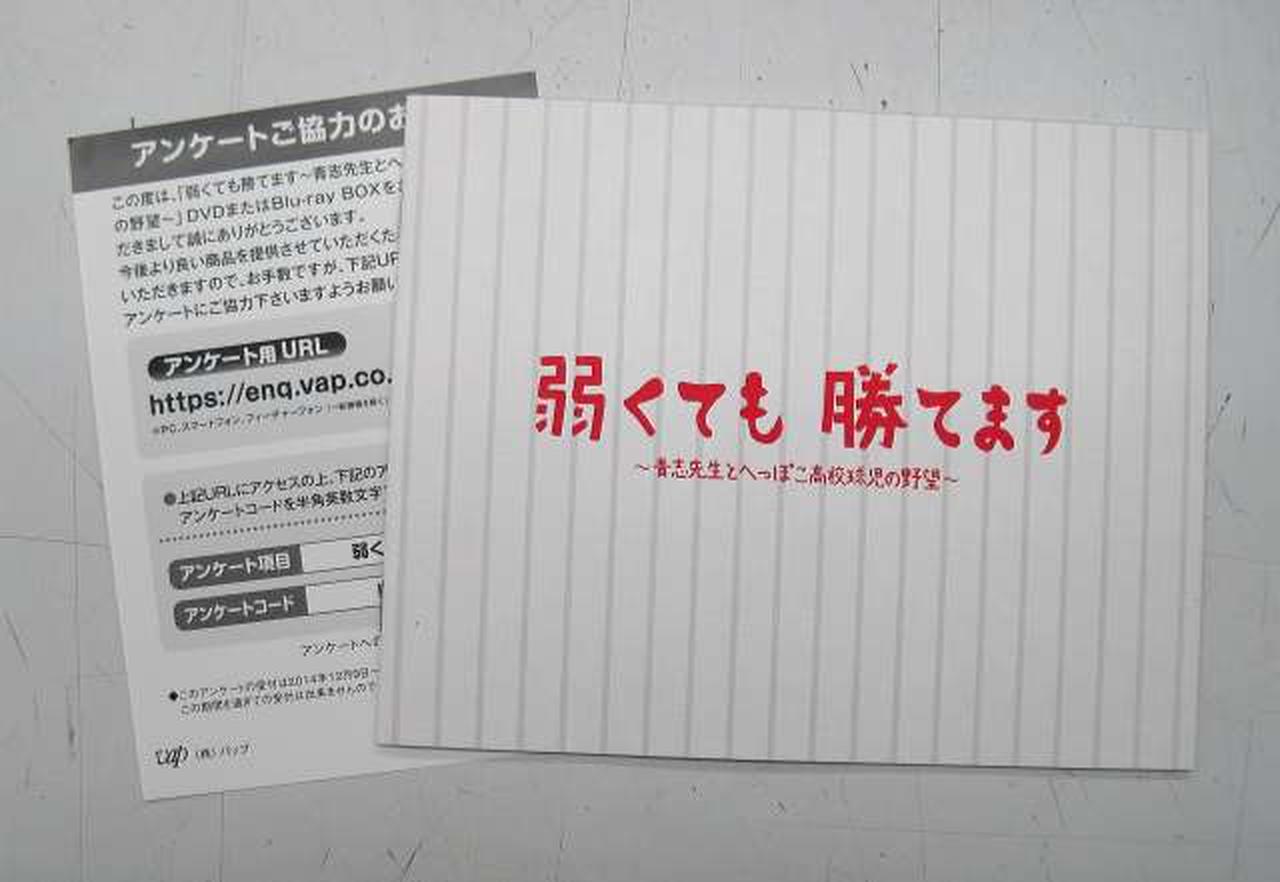 アンケートご協力のお
この度は、「弱くても勝てます～青志先生とへ
の野望～」DVDまたはBlu-ray BOXを
だきまして誠にありがとうございます。
今後より良い商品を提供させていただくた
いただきますので、お手数ですが、下記UR
アンケートにご協力下さいますようお願い
アンケート用 URL
https://enq.vap.co.
※PC、スマートフォン、フィーチャーフォン
●上記URLにアクセスの上、下記のア
アンケートコードを半角英数文字
アンケート項目 弱く
アンケートコード
アンケートへの
●このアンケートの受付は2014年12月9日～
この期間を過ぎての受付は出来ませんので
vap (株)バップ
弱くても 勝てます
～青志先生とへっぽこ高校球児の野望～